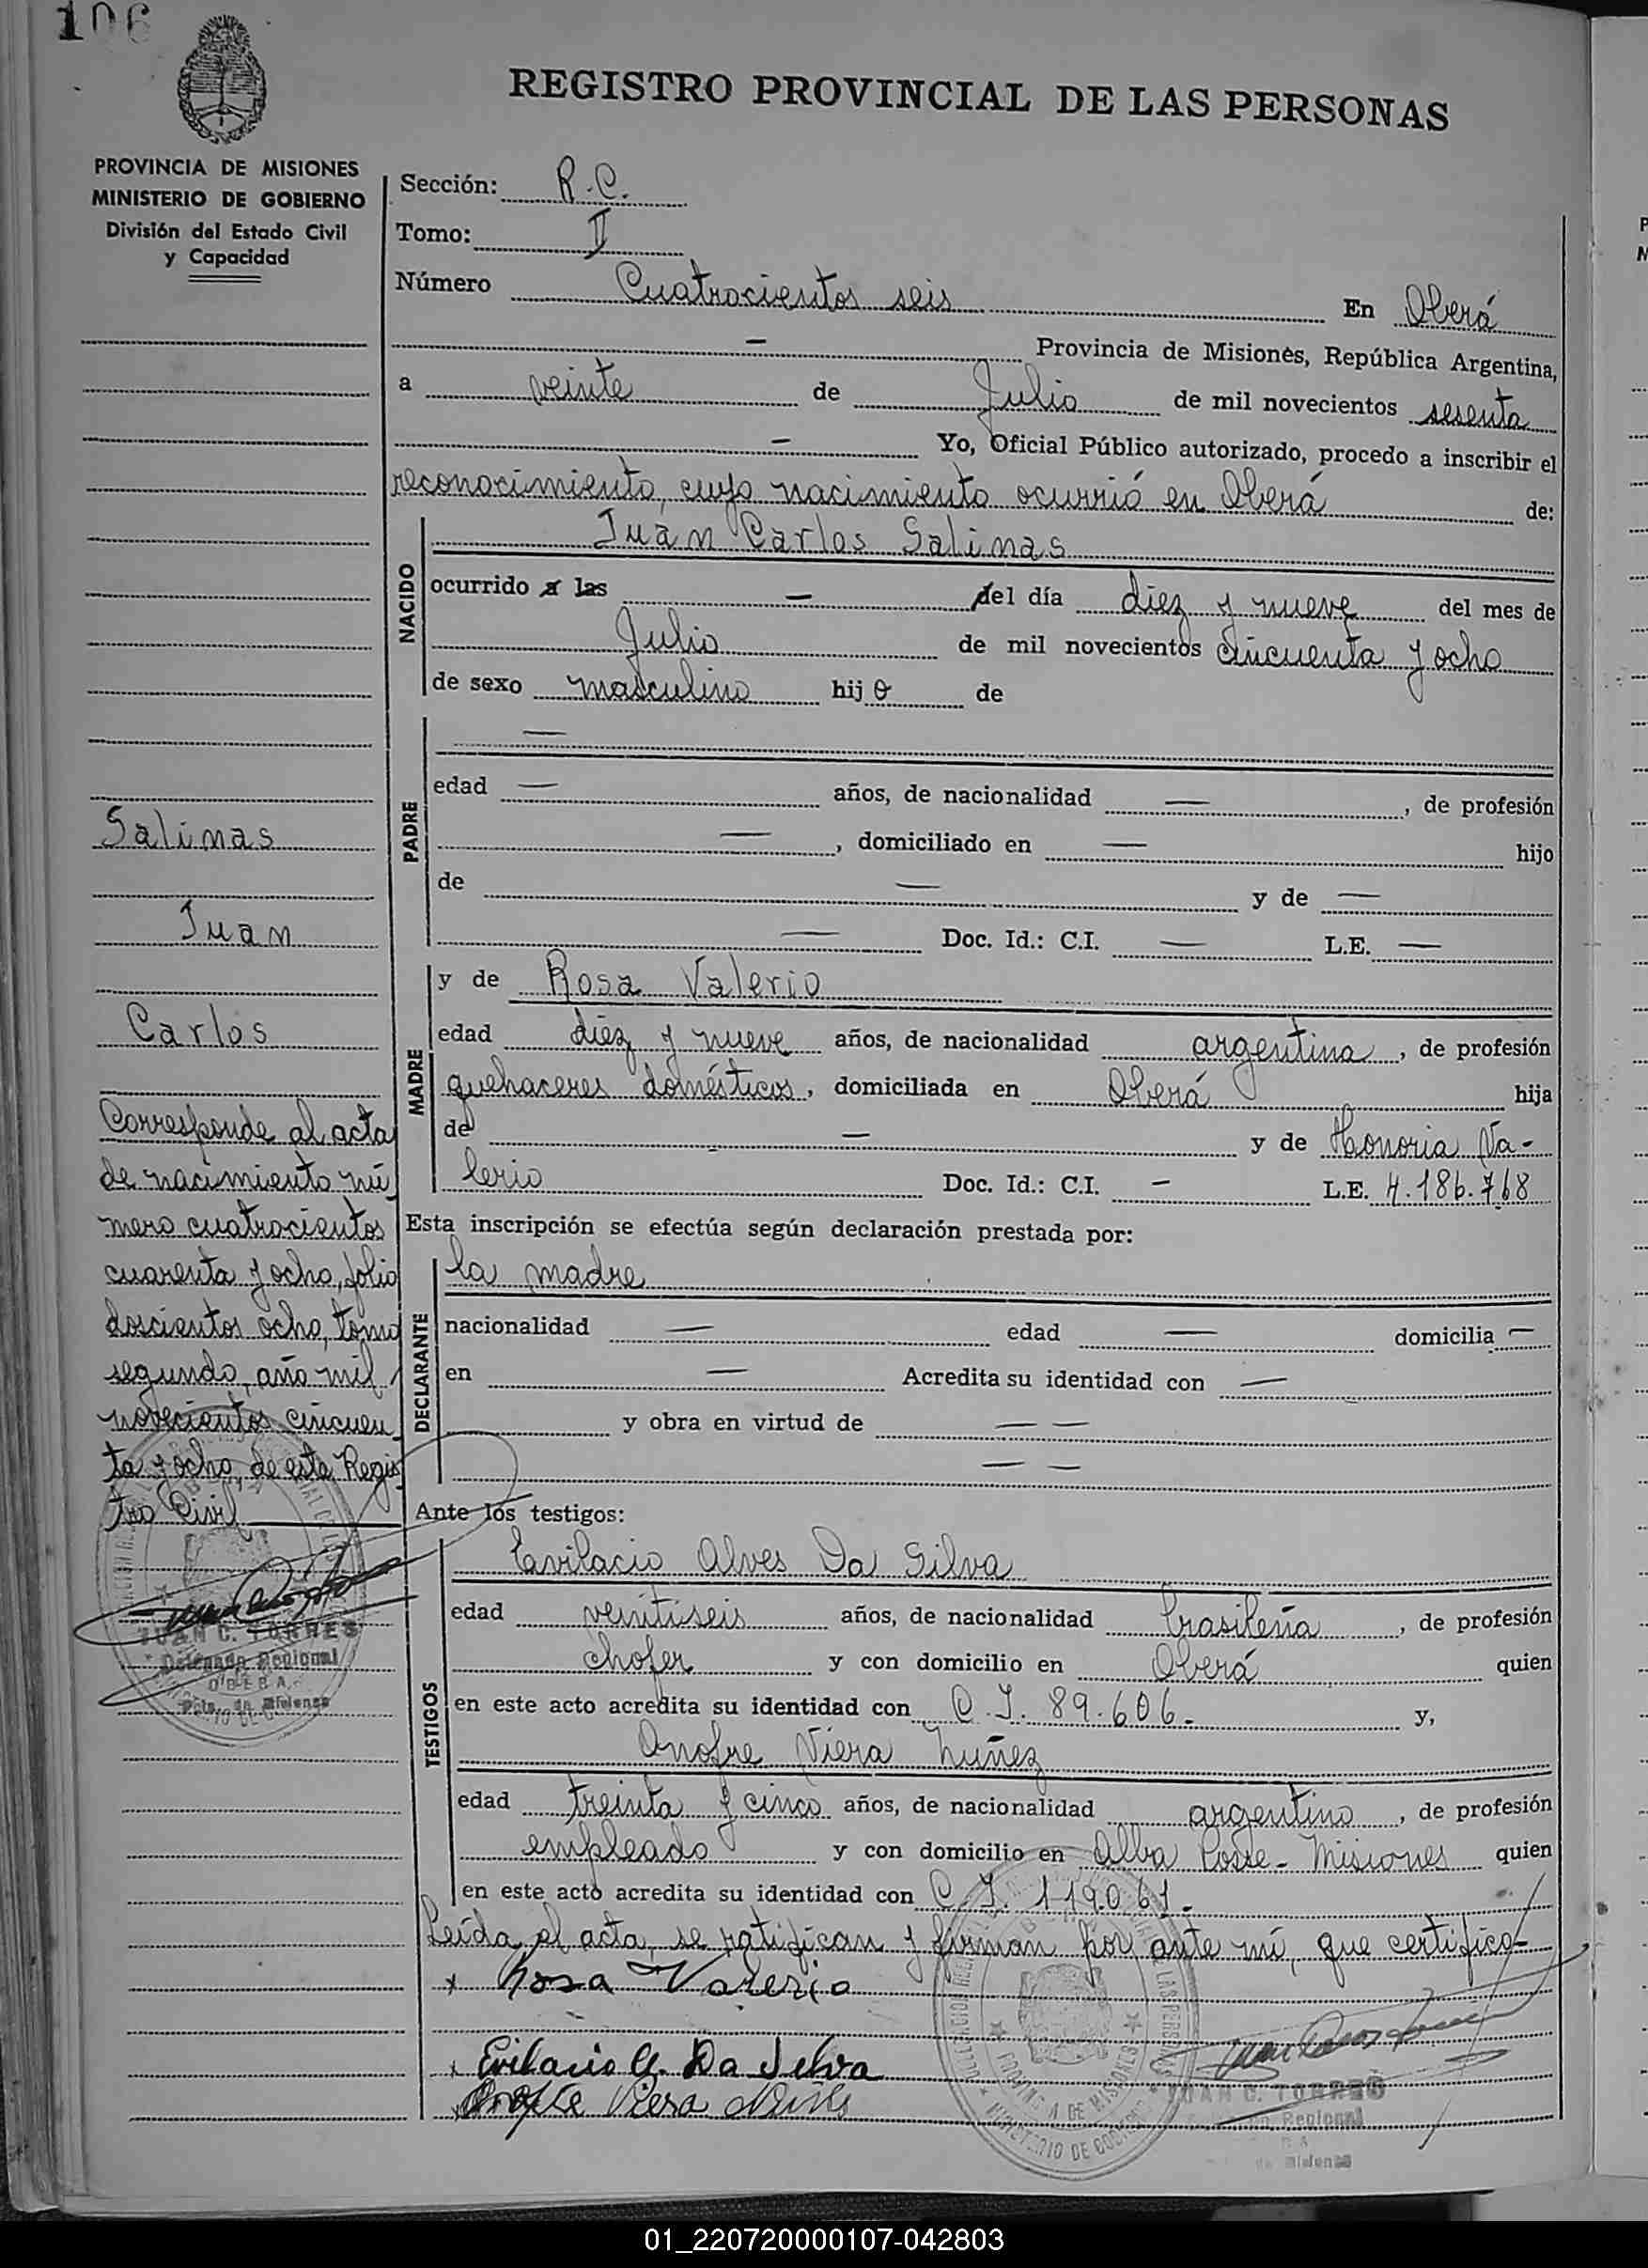 106
REGISTRO PROVINCIAL DE LAS PERSONAS
PROVINCIA DE MISIONES
MINISTERIO DE GOBIERNO
División del Estado Civil
y Capacidad
Sección: R.C.
Tomo: II
Número Cuatrocientos seis En Oberá
— Provincia de Misiones, República Argentina,
a veinte de Julio de mil novecientos sesenta
— Yo, Oficial Público autorizado, procedo a inscribir el
reconocimiento, cuyo nacimiento ocurrió en Oberá de:
NACIDO
Juan Carlos Salinas
ocurrido a las — del día diez y nueve del mes de
Julio de mil novecientos cincuenta y ocho
de sexo masculino hijo de
PADRE
—
edad — años, de nacionalidad —, de profesión
—, domiciliado en — hijo
de — y de —
— Doc. Id.: C.I. — L.E. —
MADRE
y de Rosa Valerio
edad diez y nueve años, de nacionalidad argentina, de profesión
quehaceres domésticos, domiciliada en Oberá hija
de — y de Honoria Va-
lerio Doc. Id.: C.I. — L.E. 4.186.768
Esta inscripción se efectúa según declaración prestada por:
DECLARANTE
la madre
nacionalidad — edad — domicilia —
en — Acredita su identidad con —
y obra en virtud de — —
— —
Ante los testigos:
TESTIGOS
Evilacio Alves Da Silva
edad veintiseis años, de nacionalidad brasileña, de profesión
chofer y con domicilio en Oberá quien
en este acto acredita su identidad con C.I. 89.606.- y,
Onofre Viera Nuñez
edad treinta y cinco años, de nacionalidad argentino, de profesión
empleado y con domicilio en Alba Posse - Misiones quien
en este acto acredita su identidad con C.I. 119.061.-
Leída el acta, se ratifican y firman por ante mí, que certifico-
x Rosa Valerio
x Evilacio A. Da Silva
x Onofre Viera Nuñes
JUAN C. TORRES
Regional
de Misiones
Salinas
Juan
Carlos
Corresponde al acta
de nacimiento nú
mero cuatrocientos
cuarenta y ocho, folio
doscientos ocho, tomo
segundo, año mil
novecientos cincuen
ta y ocho, de esta Regis
tro Civil
JUAN C. TORRES
Delegado Regional
OBERA
Pcia. de Misiones
01_220720000107-042803